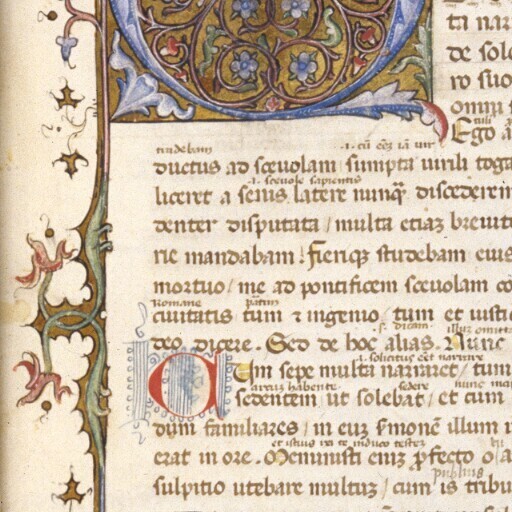 ta nar
de sole
ro suo
omni s
Ego a
trudebam .i. cū eēz iā uir
ductus ad sceuolam sumpta uirili toga
.i. sceuole sapientis
liceret a senis latere nunq̄ discederem
denter disputata / multa etiaz breuite
rie mandabam! Fieriq; studebam eius
mortuo / me ad pontificem sceuolam co
Romane
ciuitatis tum & ingenio / tum et iusti
.s. dicam.
deo dicere. Sed de hoc alias. Nunc
.i. solicitus eēt narrare
Cum sepe multa narraret / tum
habente sedere nunc
sedentem ut solebat / et cum
dum familiares / in euz smonē illum i
erat in ore. Meministi eniz pfecto o a
publius
sulpitio utebare multuz / cum is tribu